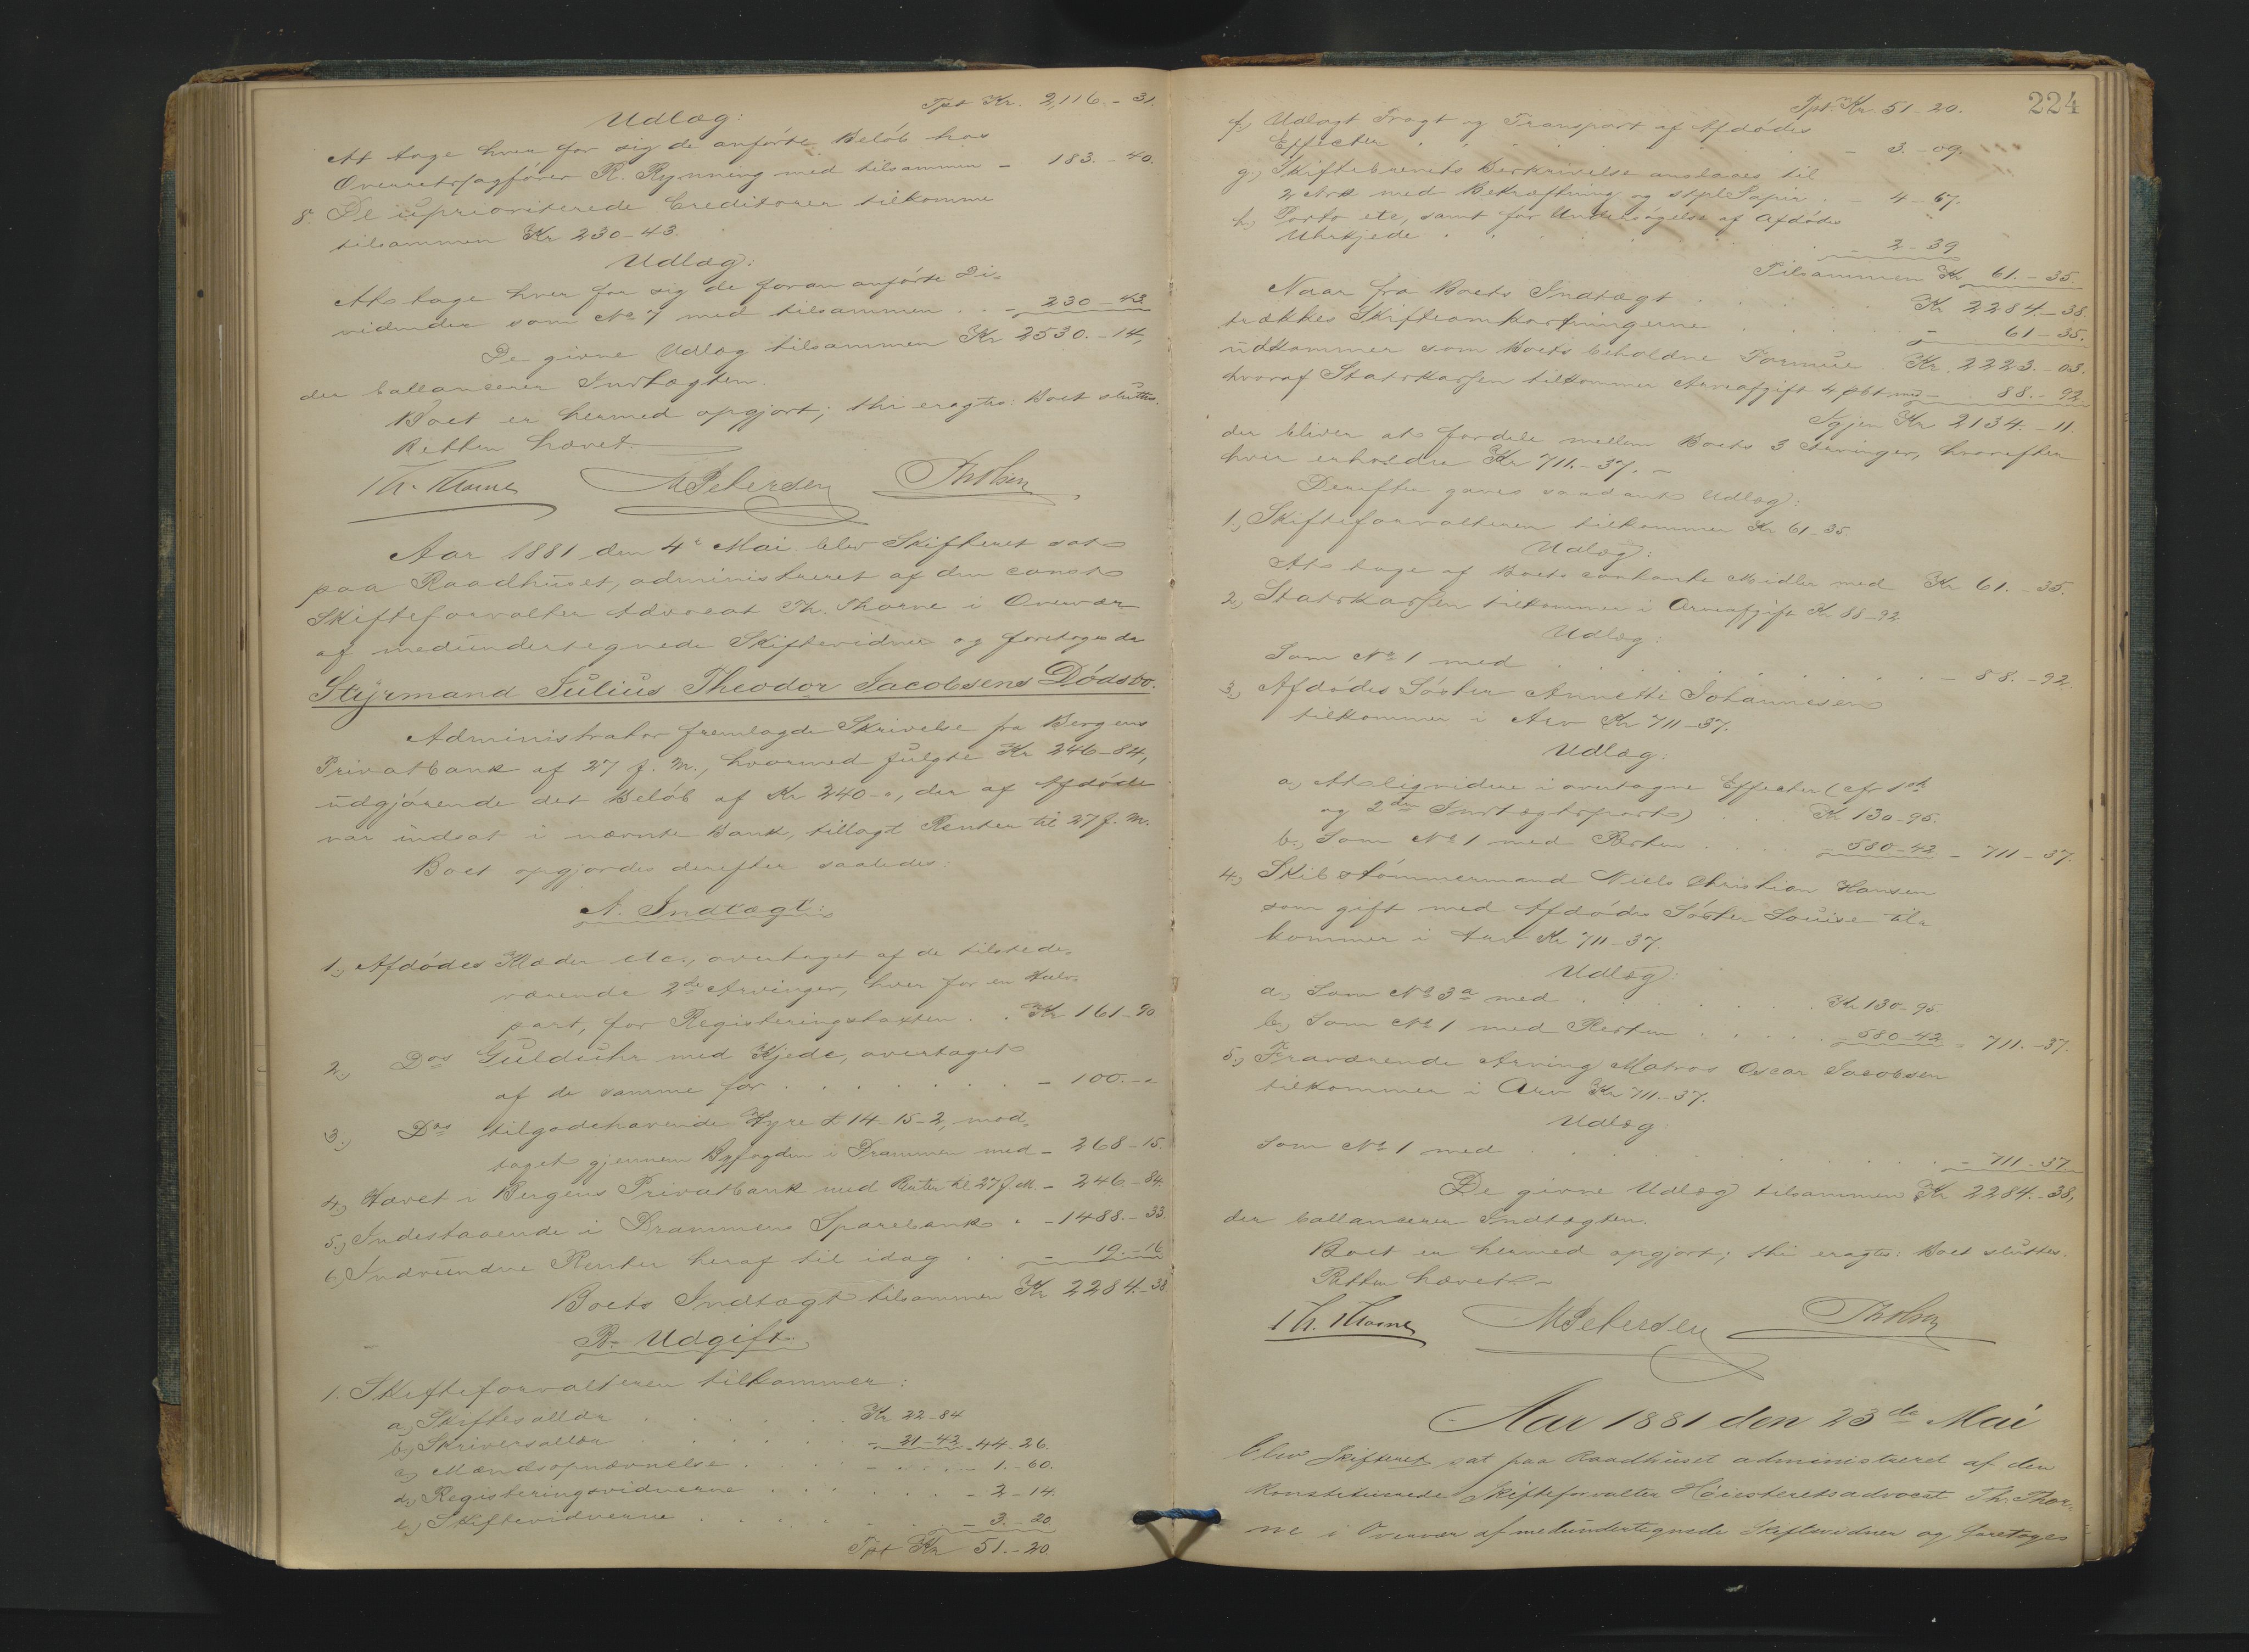 Tpt Kr. 2,116.-31.
Udlæg:
At tage hver for sig de anførte Beløb hos
Overretssagfører R. Rynning med tilsammen - 183.-40.
8. De uprioriterede Creditorer tilkomme
tilsammen Kr 230-43.
Udlæg:
At tage hver for sig de foran anførte Di-
vidender som No 7 med tilsammen . . - 230-43
De givne Udlæg tilsammen Kr 2530.-14,
der ballancerer Indtægten.
Boet er hermed opgjort; thi eragtes: Boet sluttes.
Retten hævet.
Th. Thorne MPetersen ThOlsen
Aar 1881 den 4de Mai blev Skifteret sat
paa Raadhuset, administreret af den const.
Skifteforvalter Advocat Th. Thorne i Overvær
af medundertegnede Skiftevidner og foretoges da
Styrmand Julius Theodor Jacobsens Dødsbo.
Administrator fremlagde Skrivelse fra Bergens
Privatbank af 27 f. M., hvormed fulgte Kr 246-84,
udgjørende det Beløb af Kr 240-", der af Afdøde
var indsat i nævnte Bank, tillagt Renter til 27 f. M.
Boet opgjordes derefter saaledes:
A. Indtægt:
1.) Afdødes Klæder etc., overtaget af de tilstede-
værende 2de Arvinger, hver for en Halv-
part, for Registreringstaxten . . Kr 161-90
2.) Dos Gulduhr med Kjede, overtaget
af de samme for . . . . . . . - 100.-"
3.) Dos tilgodehavende Hyre £ 14-15-2, mod-
taget gjennem Byfogden i Drammen med - 268-15.
4.) Hævet i Bergens Privatbank med Renter til 27 f. M. - 246.-84.
5.) Indestaaende i Drammens Sparebank . - 1488.-33.
6.) Indvundne Renter heraf til idag . . - 19.-16
Boets Indtægt tilsammen Kr 2284.-38
B. Udgift.
1. Skifteforvalteren tilkommer:
a.) Skiftesallær . . . . . . Kr 22-84
b.) Skriversallær . . . . . - 21-42 - 44-26.
c.) Mændsopnævnelse . . . . - . . . - 1.-60.
d.) Registreringsvidnerne . . . . . . - 2-14.
e.) Skiftevidnerne . . . . . . . - 3.-20
Tpt Kr 51.-20.
224
Tpt. Kr. 51-20.
f.) Udlagt Fragt og Transport af Afdødes
Effecter . . . . . . . - 3.-09.
g.) Skiftebrevets Beskrivelse anslaaes til
2 Ark med Bekræftning og stpl. Papir . - 4-67.
h.) Porto etc, samt for Undersøgelse af Afdødes
Uhrkjede . . . . . . . - 2-39
Tilsammen Kr 61.-35.
Naar fra Boets Indtægt . . . . . Kr 2284.-38.
trækkes Skifteomkostningerne . . . . - 61-35.
udkommer som Boets beholdne Formue Kr. 2223.-03.
hvoraf Statskassen tilkommer Arveafgift 4 pCt med - 88.-92
Igjen Kr 2134.-11.
der bliver at fordele mellem Boets 3 Arvinger, hvorefter
hver erholder Kr 711.-37.-
Derefter gaves saadant Udlæg:
1.) Skifteforvalteren tilkommer Kr 61-35.
Udlæg:
At tage af Boets contante Midler med Kr 61.-35.
2.) Statskassen tilkommer i Arveafgift Kr 88-92
Udlæg:
Som No 1 med . . . . . . . . . - 88.-92.
3.) Afdødes Søster Annette Johannesen
tilkommer i Arv Kr 711-37.
Udlæg:
a.) At liqvidere i overtagne Effecter (cfr 1ste
og 2den Indtægtspost) . Kr 130-95.
b.) Som No 1 med Resten . . . . - 580-42 - 711-37.
4.) Skibstømmermand Niels Christian Hansen
som gift med Afdødes Søster Louise til-
kommer i Arv Kr 711-37.
Udlæg:
a.) Som No 3a med . . . . . . . Kr 130-95
b.) Som No 1 med Resten . . . . . - 580-42 - 711.-37.
5.) Fraværende Arving Matros Oscar Jacobsen
tilkommer i Arv Kr 711.-37.
Udlæg:
Som No 1 med . . . . . . . . . - 711-37.
De givne Udlæg tilsammen Kr 2284.-38,
der ballancerer Indtægten.
Boet er hermed opgjort; thi eragtes: Boet sluttes.
Retten hævet.-
Th. Thorne MPetersen ThOlsen
Aar 1881 den 23de Mai
blev Skifteret sat paa Raadhuset administreret af den
konstituerede Skifteforvalter Høiesteretsadvocat Th. Thor-
ne i Overvær af medundertegnede Skiftevidner og foretoges